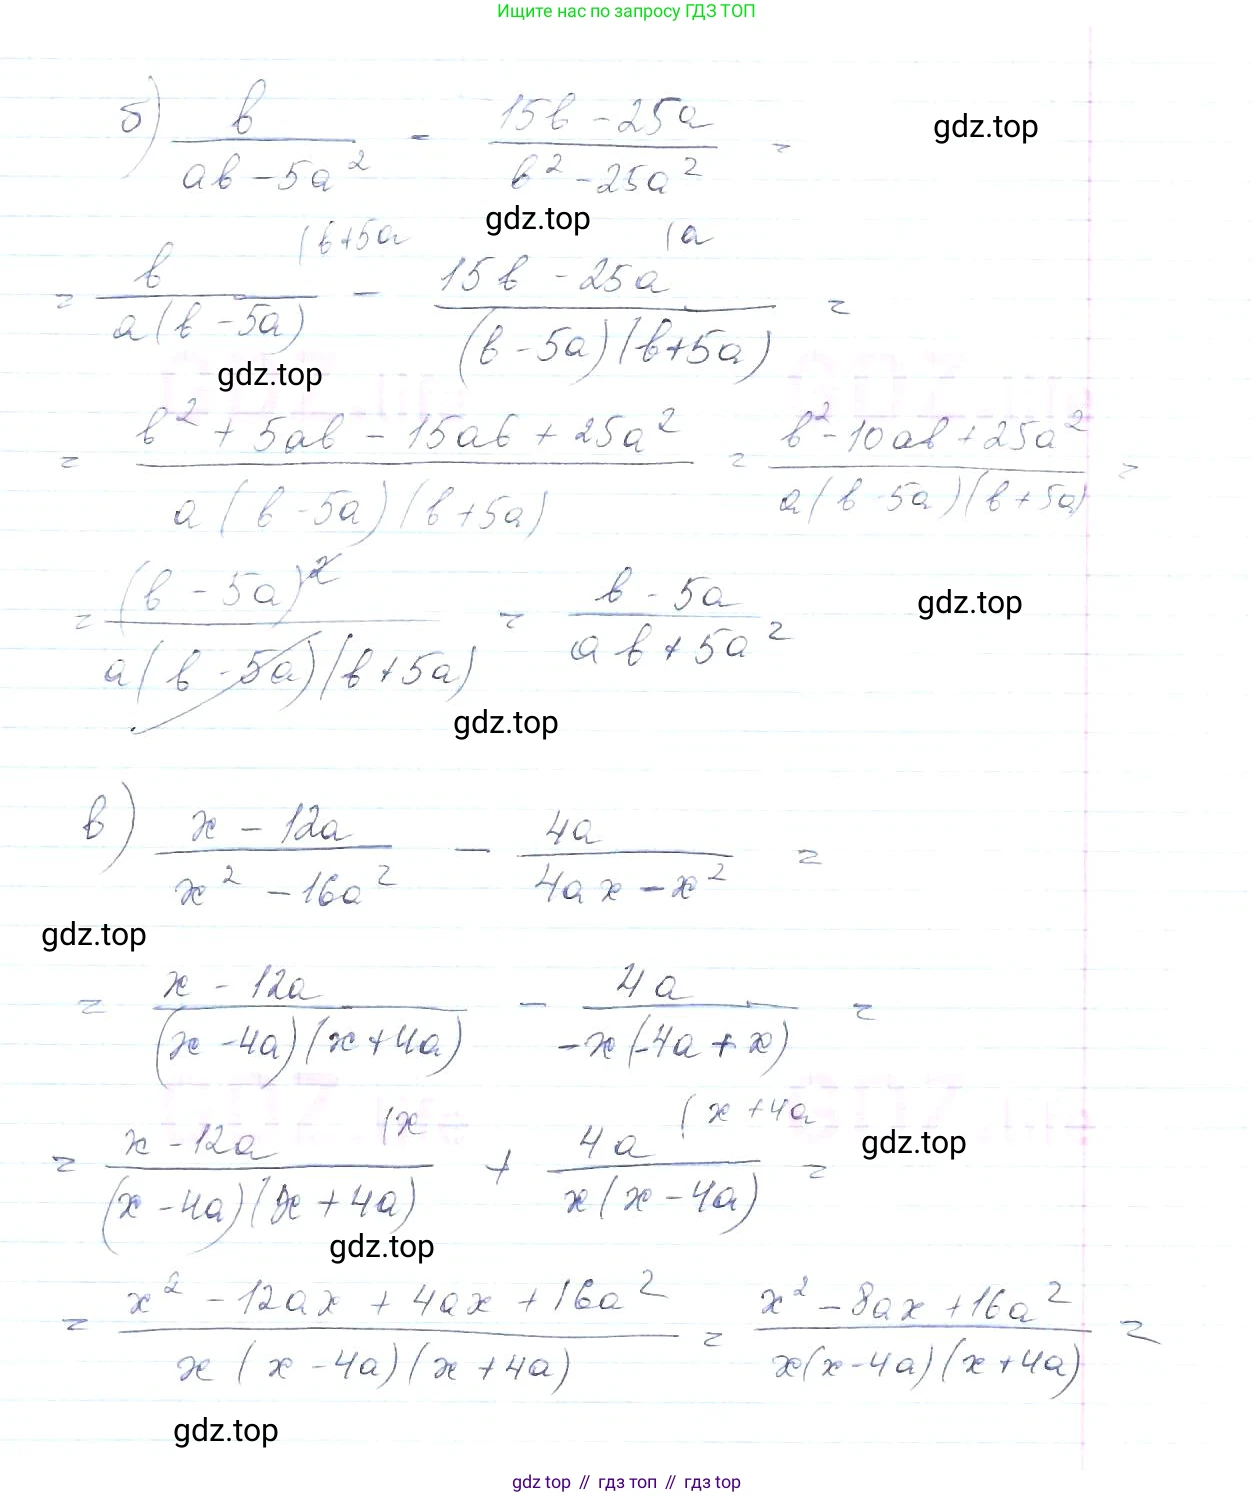 Ищите нас по запросу ГДЗ ТОП
б) b/(ab - 5a²) - (15b - 25a)/(b² - 25a²) =
gdz.top
gdz.top
= b/(a(b - 5a)) (b+5a - (15b - 25a)/((b - 5a)(b+5a)) (a =
gdz.top
= (b² + 5ab - 15ab + 25a²)/(a(b - 5a)(b+5a)) = (b² - 10ab + 25a²)/(a(b - 5a)(b+5a)) =
= (b - 5a)²/(a(b - 5a)(b+5a)) = (b - 5a)/(ab + 5a²)
gdz.top
gdz.top
в) (x - 12a)/(x² - 16a²) - 4a/(4ax - x²) =
gdz.top
= (x - 12a)/((x - 4a)(x+4a)) - 4a/(-x(-4a + x)) =
= (x - 12a)/((x - 4a)(x + 4a)) (x + 4a/(x(x - 4a)) (x + 4a =
gdz.top
gdz.top
= (x² - 12ax + 4ax + 16a²)/(x(x - 4a)(x + 4a)) = (x² - 8ax + 16a²)/(x(x - 4a)(x + 4a)) =
gdz.top
gdz.top // гдз топ // гдз top